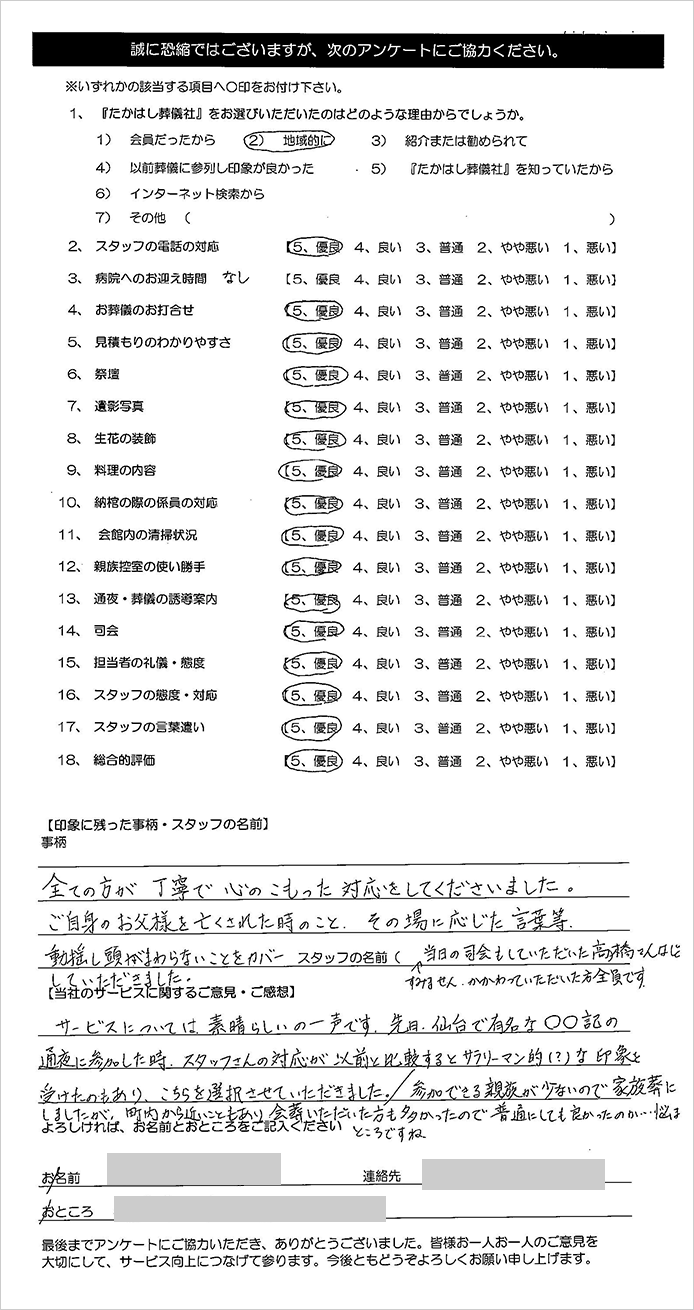 誠に恐縮ではございますが、次のアンケートにご協力ください。
※いずれかの該当する項目へ〇印をお付け下さい。
1、『たかはし葬儀社』をお選びいただいたのはどのような理由からでしょうか。
1） 会員だったから 2） 地域的に 3） 紹介または勧められて
4） 以前葬儀に参列し印象が良かった 5） 『たかはし葬儀社』を知っていたから
6） インターネット検索から
7） その他 （ ）
2、スタッフの電話の対応 【5、優良 4、良い 3、普通 2、やや悪い 1、悪い】
3、病院へのお迎え時間 なし 【5、優良 4、良い 3、普通 2、やや悪い 1、悪い】
4、お葬儀のお打合せ 【5、優良 4、良い 3、普通 2、やや悪い 1、悪い】
5、見積もりのわかりやすさ 【5、優良 4、良い 3、普通 2、やや悪い 1、悪い】
6、祭壇 【5、優良 4、良い 3、普通 2、やや悪い 1、悪い】
7、遺影写真 【5、優良 4、良い 3、普通 2、やや悪い 1、悪い】
8、生花の装飾 【5、優良 4、良い 3、普通 2、やや悪い 1、悪い】
9、料理の内容 【5、優良 4、良い 3、普通 2、やや悪い 1、悪い】
10、納棺の際の係員の対応 【5、優良 4、良い 3、普通 2、やや悪い 1、悪い】
11、会館内の清掃状況 【5、優良 4、良い 3、普通 2、やや悪い 1、悪い】
12、親族控室の使い勝手 【5、優良 4、良い 3、普通 2、やや悪い 1、悪い】
13、通夜・葬儀の誘導案内 【5、優良 4、良い 3、普通 2、やや悪い 1、悪い】
14、司会 【5、優良 4、良い 3、普通 2、やや悪い 1、悪い】
15、担当者の礼儀・態度 【5、優良 4、良い 3、普通 2、やや悪い 1、悪い】
16、スタッフの態度・対応 【5、優良 4、良い 3、普通 2、やや悪い 1、悪い】
17、スタッフの言葉遣い 【5、優良 4、良い 3、普通 2、やや悪い 1、悪い】
18、総合的評価 【5、優良 4、良い 3、普通 2、やや悪い 1、悪い】
【印象に残った事柄・スタッフの名前】
事柄
全ての方が丁寧で心のこもった対応をしてくださいました。
ご自身のお父様を亡くされた時のこと、その場に応じた言葉等、
動揺し頭がまわらないことをカバー スタッフの名前（ 当日の司会もしていただいた高橋さんなど
していただきました。 すみません、かかわっていただいた方全員です
【当社のサービスに関するご意見・ご感想】
サービスについては、素晴らしいの一声です。先日、仙台で有名な〇〇記の
通夜に参加した時、スタッフさんの対応が以前と比較するとサラリーマン的(?)な印象を
受けたのもあり、こちらを選択させていただきました。/参加できる親族が少ないので家族葬に
しましたが、町内から近いこともあり会葬いただいた方も多かったので普通にしても良かったのか…悩む
ところですね
よろしければ、お名前とおところをご記入ください
お名前 連絡先
おところ
最後までアンケートにご協力いただき、ありがとうございました。皆様お一人お一人のご意見を
大切にして、サービス向上につなげて参ります。今後ともどうぞよろしくお願い申し上げます。